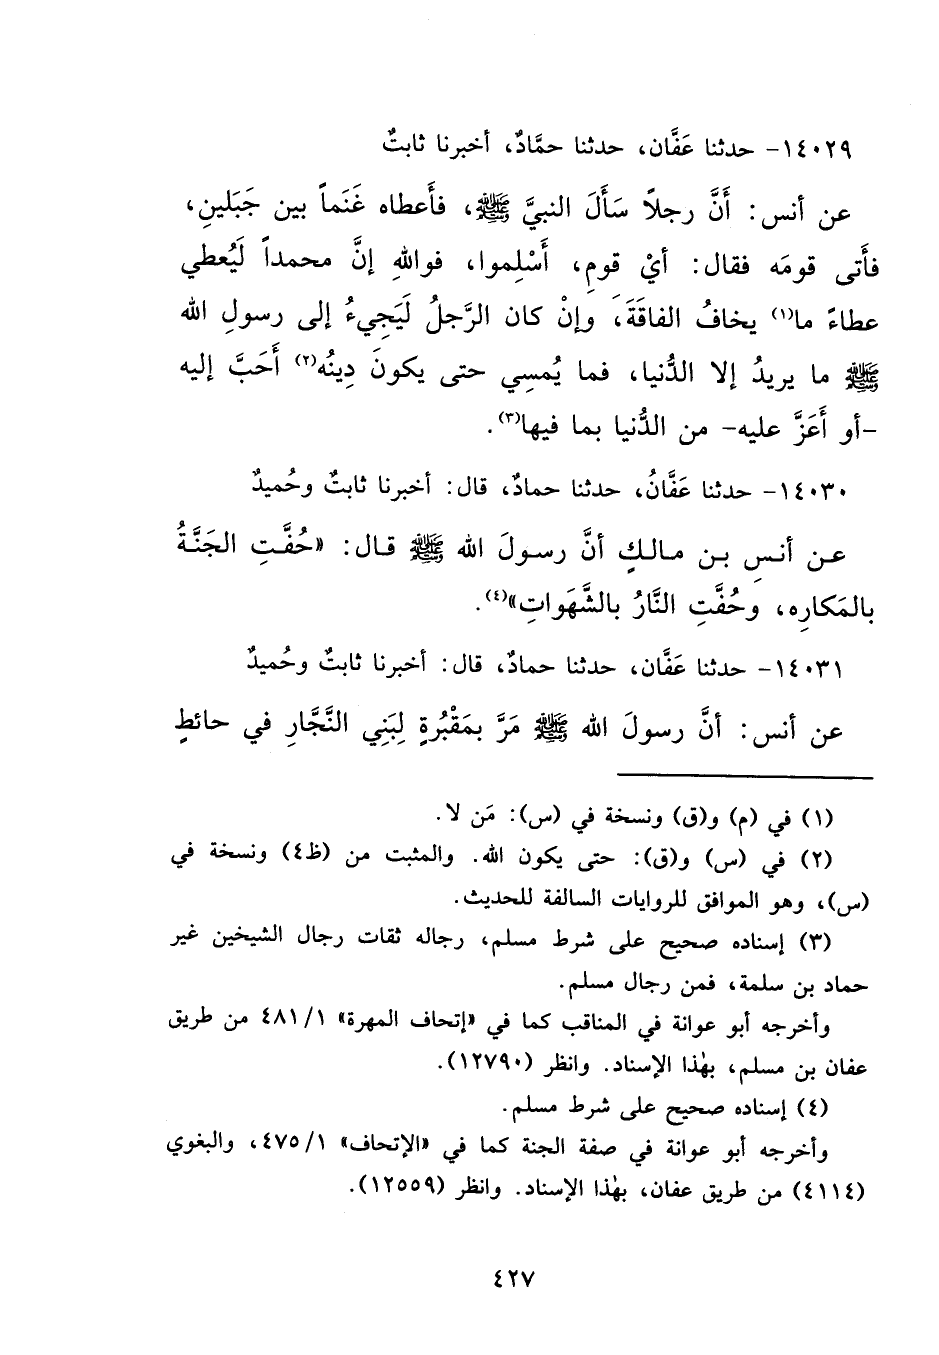 ١٤٠٢٩- حدثنا عَفَّان، حدثنا حمَّادٌ، أخبرنا ثابتٌ
عن أنس: أَنَّ رجلاً سَأَلَ النبيَّ ﷺ، فأَعطاه غَنَماً بين جَبَلينِ،
فأَتى قومَه فقال: أيْ قومِ، أَسْلِموا، فواللهِ إنَّ محمداً لَيُعطي
عطاءً ما(١) يخافُ الفاقَةَ، وإنْ كان الرَّجلُ لَيَجِيءُ إلى رسولِ الله
ﷺ ما يريدُ إلا الدُّنيا، فما يُمسِي حتى يكونَ دِينُه(٢) أَحَبَّ إليه
-أو أَعَزَّ عليه- من الدُّنيا بما فيها(٣).
١٤٠٣٠- حدثنا عَفَّانُ، حدثنا حمادٌ، قال: أخبرنا ثابتٌ وحُميدٌ
عن أنسِ بن مالكٍ أنَّ رسولَ الله ﷺ قال: «حُفَّتِ الجَنَّةُ
بالمَكارِه، وحُفَّتِ النَّارُ بالشَّهَواتِ»(٤).
١٤٠٣١- حدثنا عَفَّان، حدثنا حمادٌ، قال: أخبرنا ثابتٌ وحُميدٌ
عن أنس: أنَّ رسولَ الله ﷺ مَرَّ بمَقْبُرةٍ لِبَنِي النَّجَّارِ في حائطٍ
(١) في (م) و(ق) ونسخة في (س): مَن لا.
(٢) في (س) و(ق): حتى يكون الله. والمثبت من (ظ٤) ونسخة في
(س)، وهو الموافق للروايات السالفة للحديث.
(٣) إسناده صحيح على شرط مسلم، رجاله ثقات رجال الشيخين غير
حماد بن سلمة، فمن رجال مسلم.
وأخرجه أبو عوانة في المناقب كما في «إتحاف المهرة» ٤٨١/١ من طريق
عفان بن مسلم، بهٰذا الإسناد. وانظر (١٢٧٩٠).
(٤) إسناده صحيح على شرط مسلم.
وأخرجه أبو عوانة في صفة الجنة كما في «الإتحاف» ٤٧٥/١، والبغوي
(٤١١٤) من طريق عفان، بهٰذا الإسناد. وانظر (١٢٥٥٩).
٤٢٧